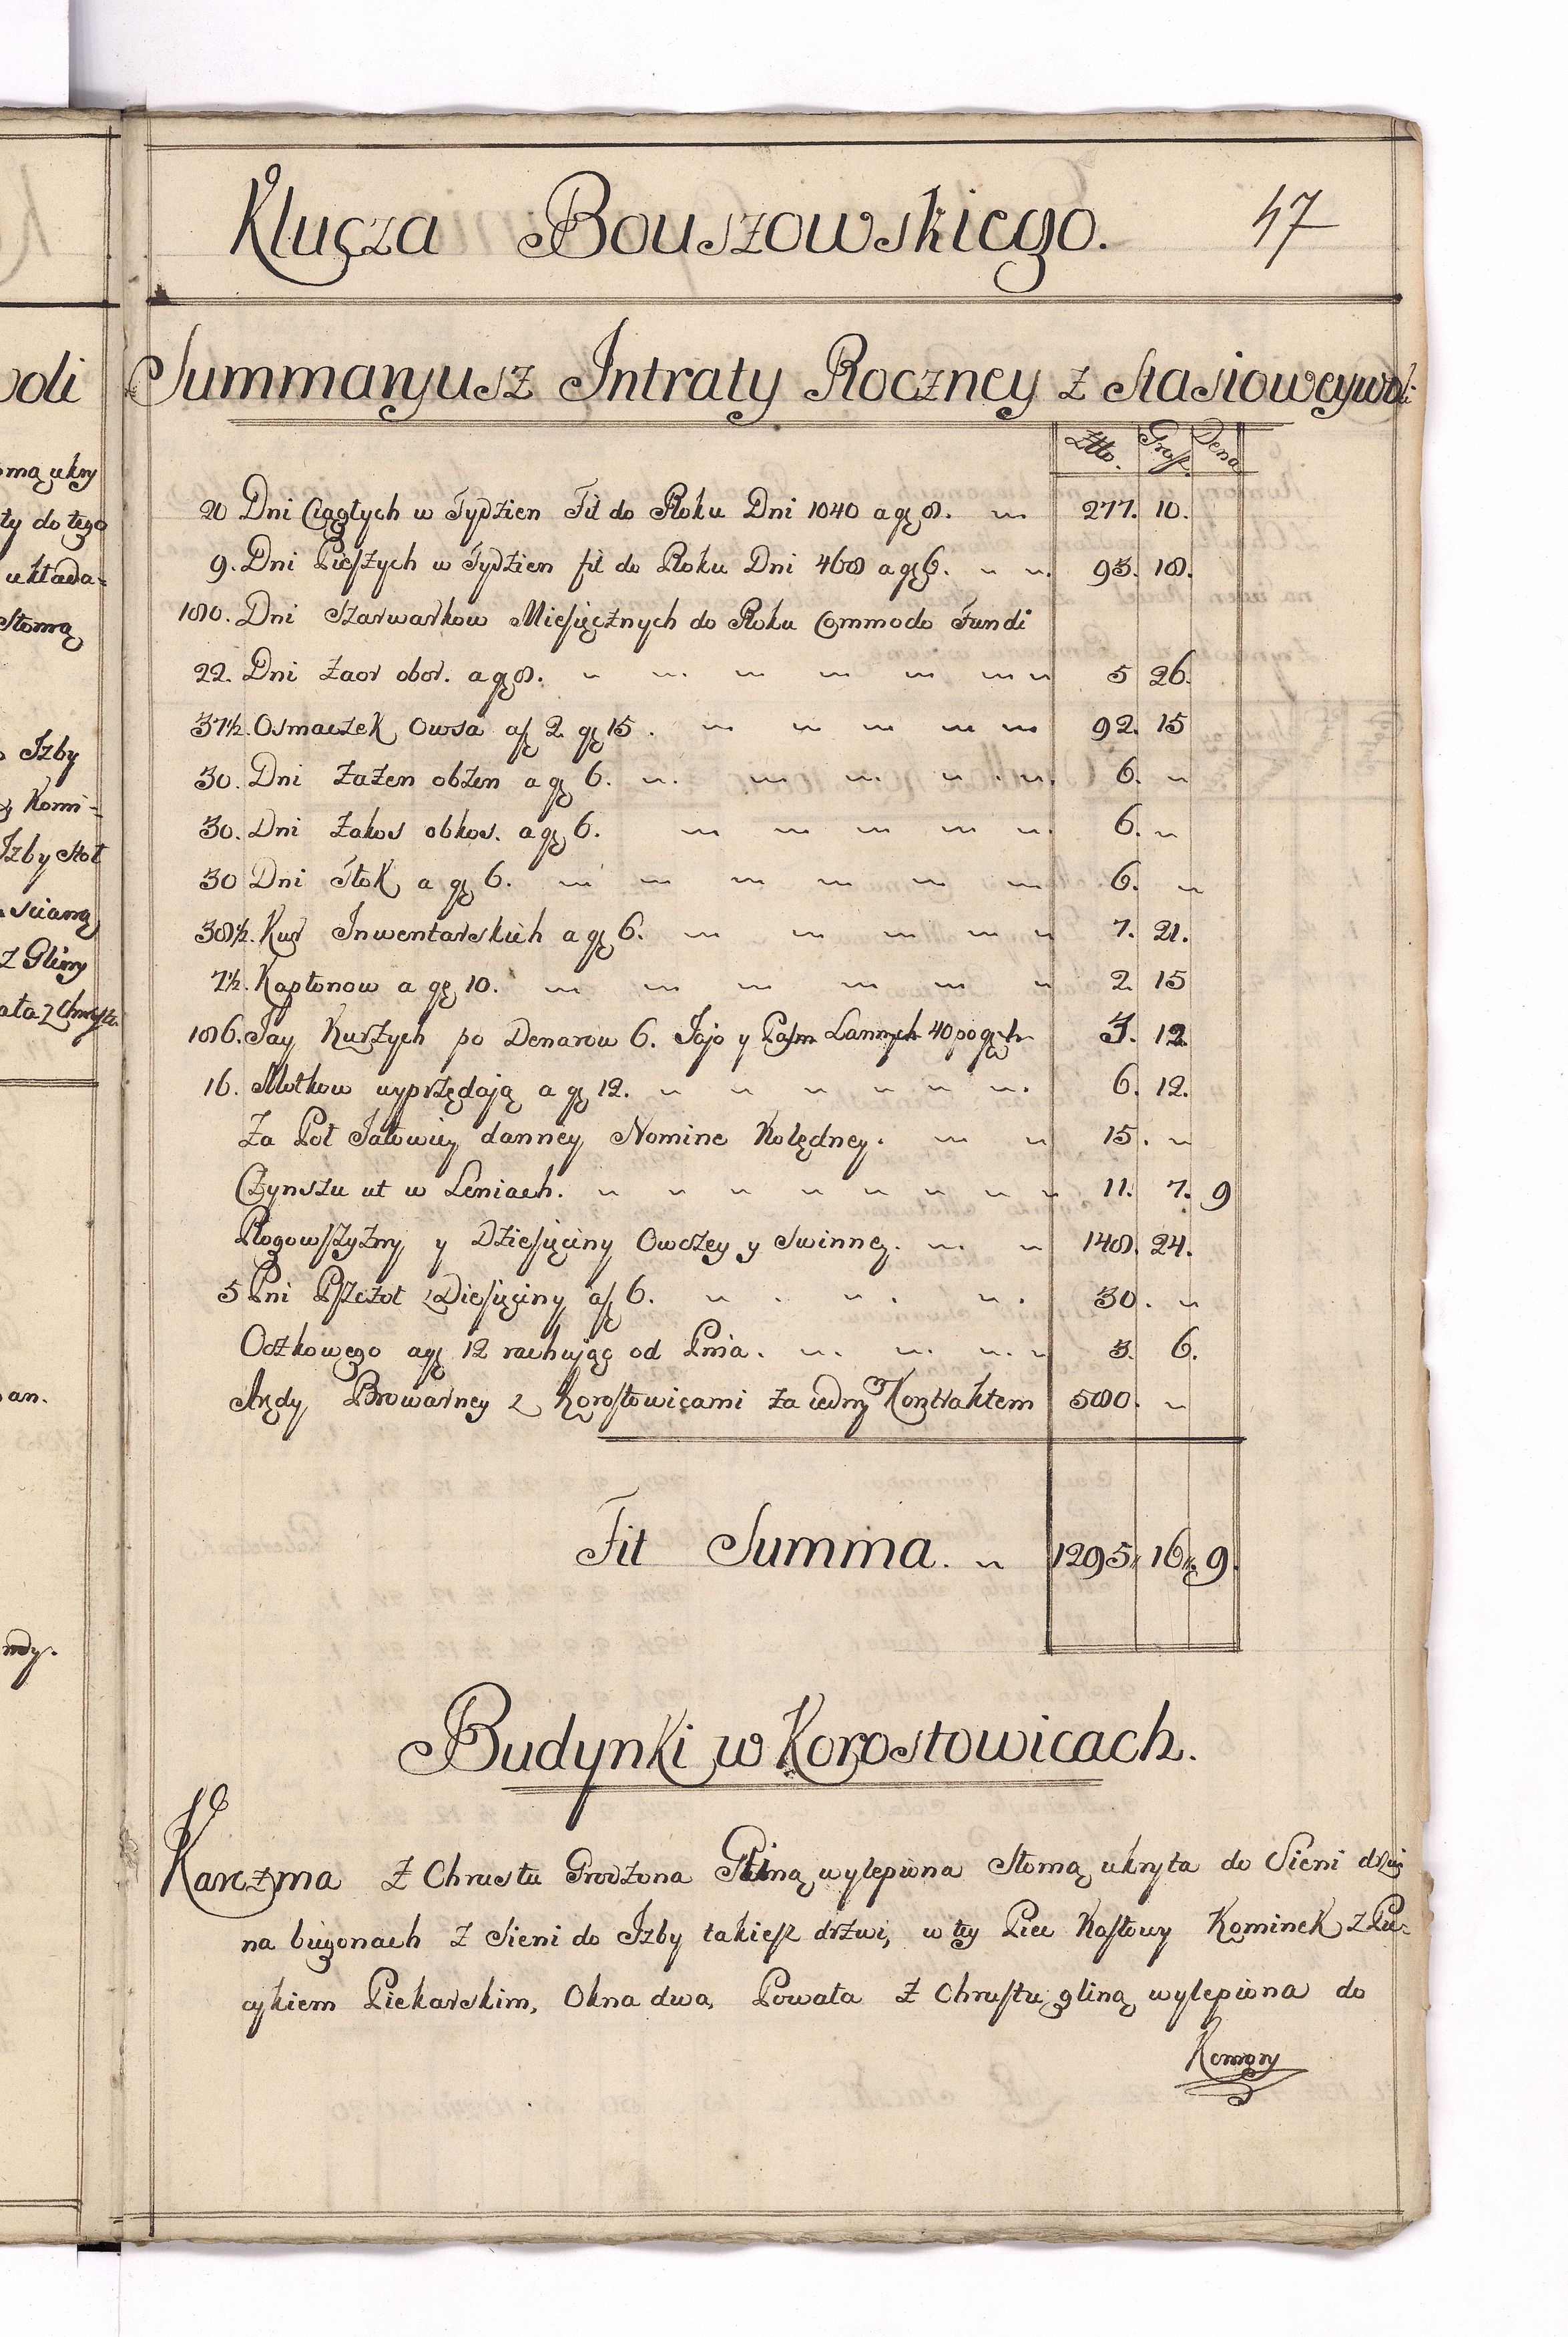 oli
omą ukry
ty do tego
układa-
Słomą
Izby
Komi-
Izby Stoł
scianą
z Gliny
ała z Chrustu
an.
Klucza Bouszowskiego. 47
Summaryusz Intraty Roczney z Stasioweywoli
Złto. Grosz. Dena
20 Dni Ciągłych w Tydzien Fit do Roku Dni 1040 a gr 8. 277. 10.
9. Dni Pieszych w Tydzien fit do Roku Dni 468 a gr 6. 93. 18.
180. Dni Szarwarkow Miesięcznych do Roku Commodo Fundi
22. Dni Zaor obor. a gr 8. 5 26.
37½. Osmaczek Owsa af 2 gr 15. 92. 15
30. Dni Zażen obżen a gr 6. 6.
30. Dni Zakos obkos. a gr 6. 6.
30 Dni Tłok a gr 6. 6.
38½. Kur Inwentarskich a gr 6. 7. 21.
7½. Kapłonow a gr 10. 2. 15
186. Jay Kurzych po Denarow 6. Jajo y Pasm Lannych 40 po gr 3. 12
16. Motkow wyprzędają a gr 12. 6. 12.
Za Poł Jałowicy danney Nomine Kolędney. 15.
Czynszu ut w Leniach. 11. 7. 9
Rogowszyzny y Dziesięciny Owczey y Swinney. 148. 24.
5 Pni Pszczoł z Diesięciny af 6. 30.
Oczkowego a gr 12 rachując od Pnia. 3. 6.
Arędy Browarney z Korostowicami za iednym Kontraktem 580.
Fit Summa. 1295. 16. 9.
Budynki w Korostowicach.
Karczma z Chrustu Grodzona Gliną wylepiona Słomą ukryta do Sieni drzwi
na biegonach z Sieni do Izby takiesz drzwi, w tey Piec Kaflowy Kominek z Pie-
cykiem Piekarskim, Okna dwa, Powała z Chrustu gliną wylepiona do
Komory